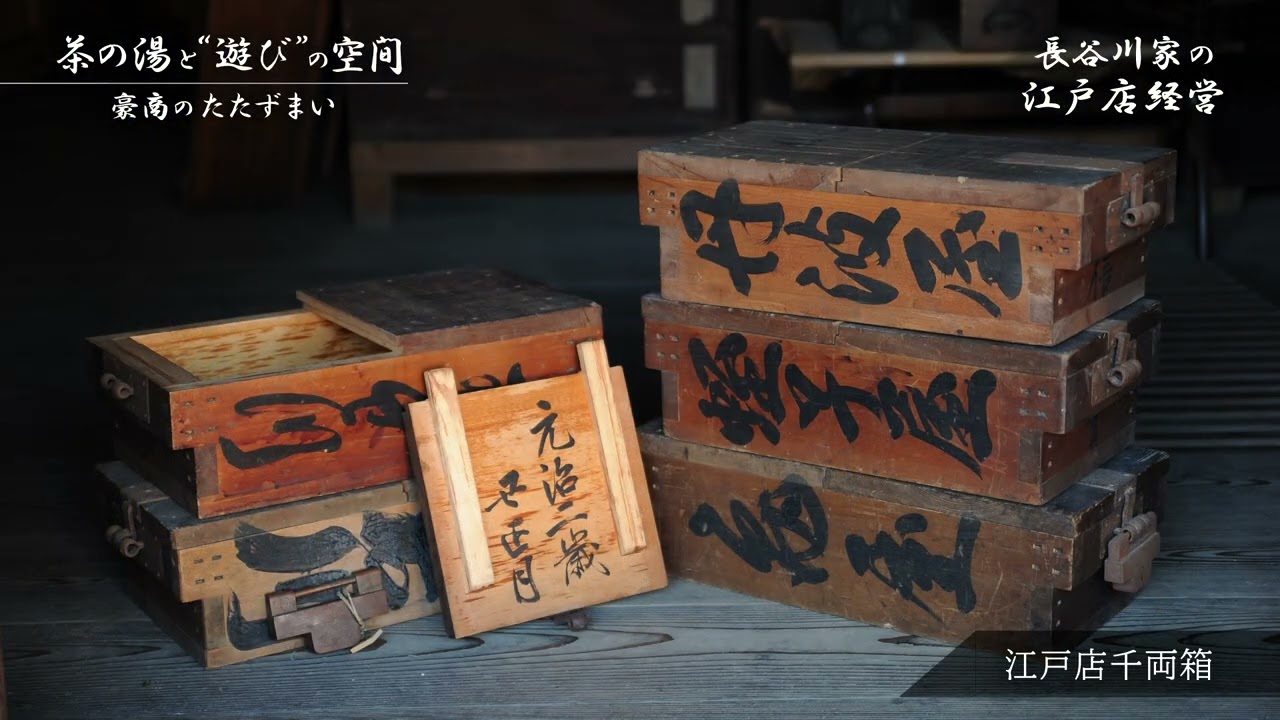 茶の湯と“遊び”の空間
豪商のたたずまい
長谷川家の
江戸店経営
丹波屋
蛭子屋
亀屋
元治二歳
丑正月
江戸店千両箱